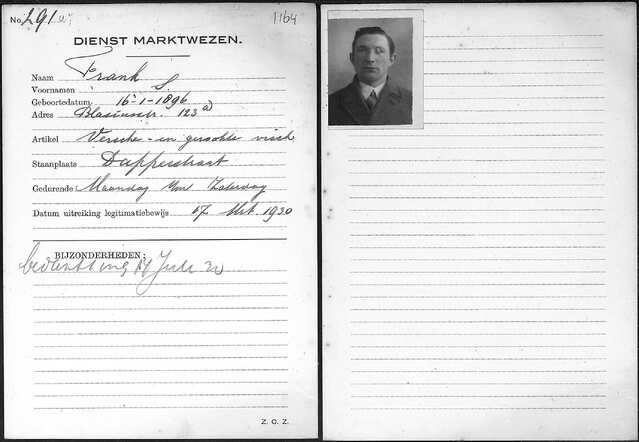 No. 291
1164
DIENST MARKTWEZEN.
Naam Frank
Voornamen S.
Geboortedatum 16-1-1896
Adres Blasiusstr. 123 a)
Artikel Versche- en gerookte visch
Staanplaats Dapperstraat
Gedurende Maandag t/m Zaterdag
Datum uitreiking legitimatiebewijs 17 1930
BIJZONDERHEDEN:
Juli
Z. O. Z.